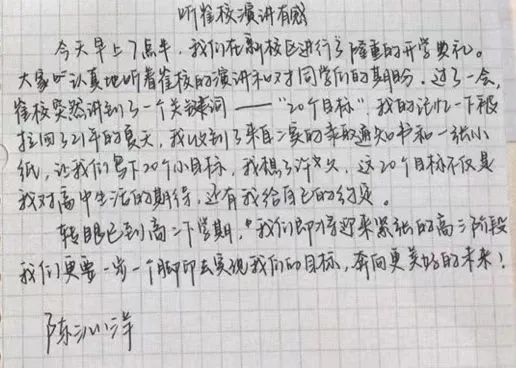 听崔校演讲有感
今天早上7点半，我们在新校区进行了隆重的开学典礼。
大家都认真地听着崔校的演讲和对同学们的期盼。过了一会，
崔校突然讲到了一个关键词——“20个目标”，我的记忆一下被
拉回了21年的夏天，我收到了来自二实的录取通知书和一张小
纸，让我们写下20个小目标，我想了许久，这20个目标不仅是
我对高中生活的期待，还有我给自己的约定。
转眼已到高二下学期，我们即将迎来紧张的高三阶段
我们更要一步一个脚印去实现我们的目标，奔向更美好的未来！
陈沁洋